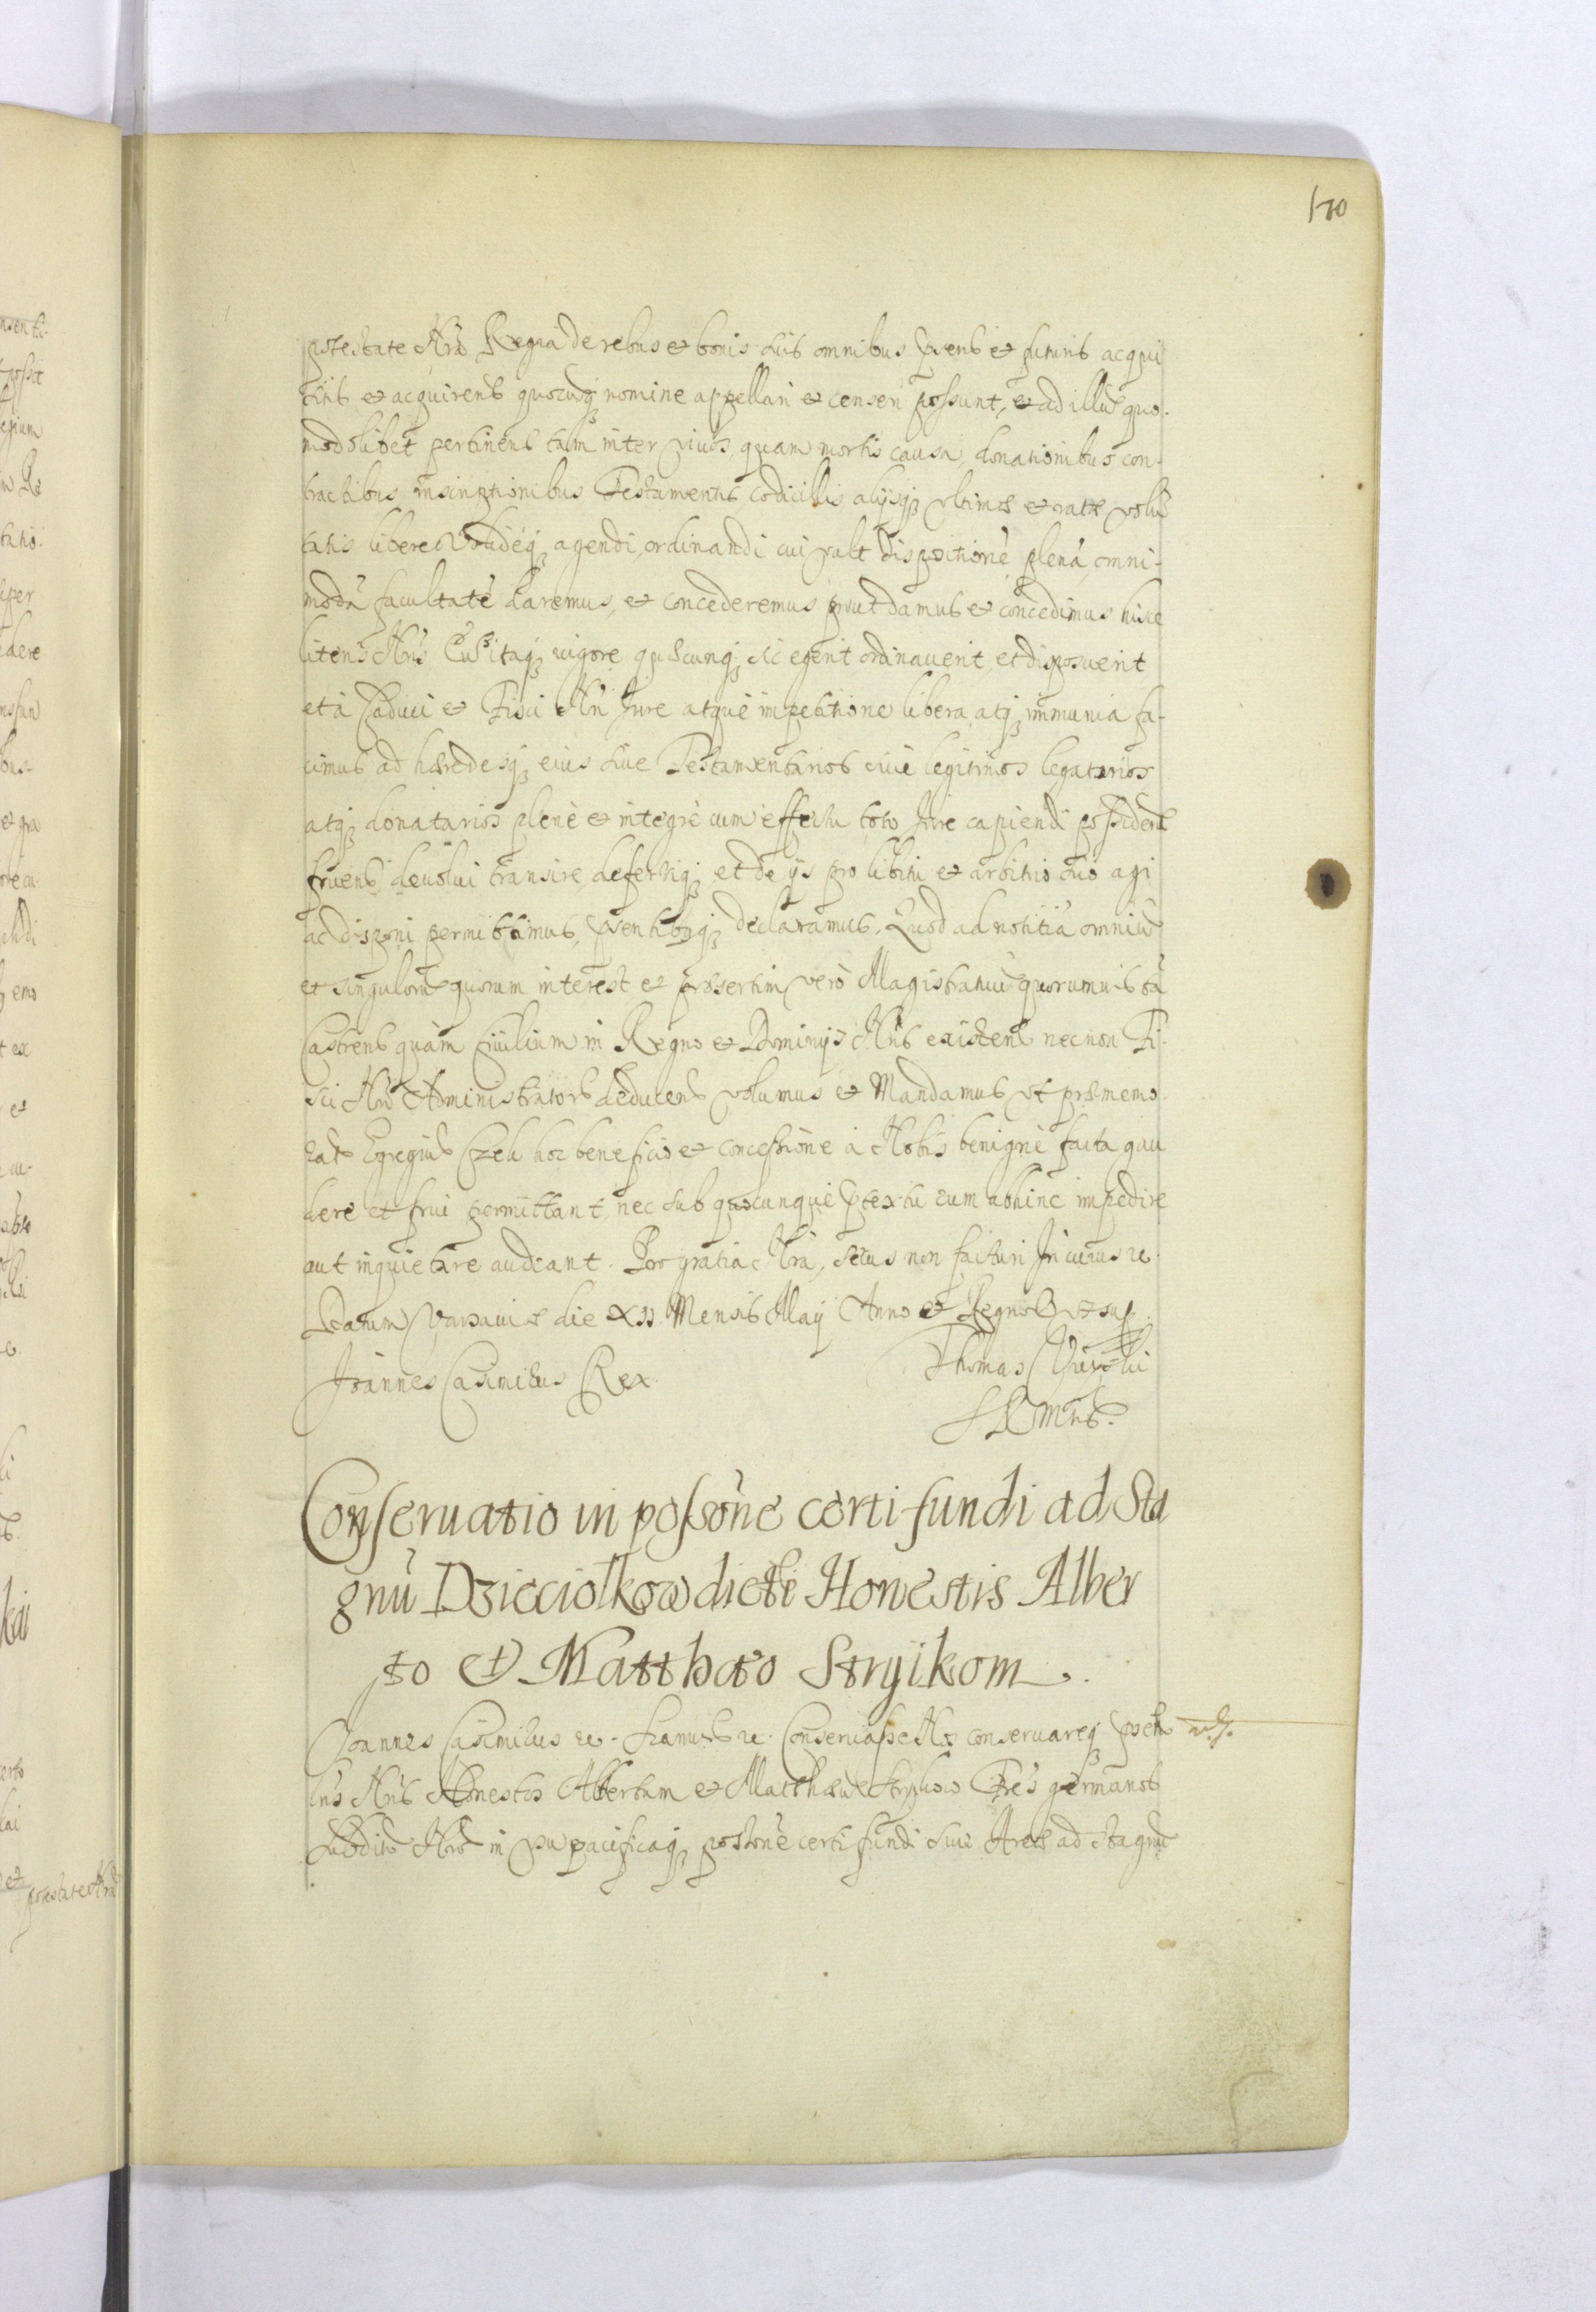 170
potestate Nrã Regia de rebus et bonis suis omnibus pntib et futuris acqui
sitis et acquirends quocuq nomine appellari et censeri possunt, et ad illũ quo-
modolibet pertinentib tam inter viuos, quam mortis causa, donationibus con-
tractibus, inscriptionibus Testamentis, codicillis alijsq vltimæ et ratæ volũ
tatis libere agendi, ordinandi cui vult dispositionẽ plenã, omni-
modã facultatẽ daremus, et concederemus prout damus et concedimus hisce
literis Nris Cuius itaq vigore quæcunq sic egerit ordinauerit, et disposuerit
et à Caduci et Fisci Nri Jure atque impetitione libera, atq immunia fa-
cimus ad hæredesq eius siue Testamentarios siue legitimos legatarios
atq donatarios plenè et integrè cum effectu toto Jure capiendi possidendi
fruendi deuolui transire, deferriq et de ijs pro libitu et arbitrio suo agi
ac disponi permittimus, pntibusq declaramus. Quod ad notitiã omniũ
et singulorũ quorum interest et præsertim vero Magistratuũ quorumuis tã
Castrens quàm Ciuilium in Regno et Dominijs Nris existen necnon Fi-
sci Nri Administratorib deducen volumus et Mandamus vt præmemo-
rat Egregiũ Czeli hoc beneficio et concessione à Nobis benignè facta gau
dere et frui permittant, nec sub quocunque prætextu eum abhinc impedire
aut inquietare audeant. Pro gratia Nrã, secus non facturi In cuius rei
Datum Varsauiæ die XII Mensis Maij Anno et Regnor vt sup.
Joannes Casimirus Rex. Thomas
Conseruatio in possõne certi fundi ad Sta
gnũ Dzieciolkow dicti Honestis Alber
to et Matthæo Stryikom.
Joannes Casimirus etc. Conseruasse Nos conseruareq pntib
lris Nris Honestos Albertum et Matthæũ Strykow Frẽs germanos
subditos Nros in pacificaq possone certi fundi siue Areæ ad Stagnũ
potestate Nrã